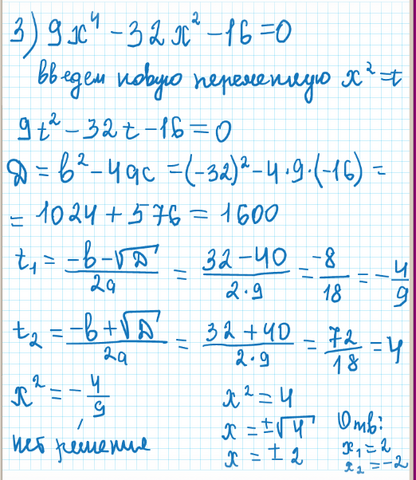 3) 9x⁴ - 32x² - 16 = 0
введем новую переменную x² = t
9t² - 32t - 16 = 0
D = b² - 4ac = (-32)² - 4·9·(-16) =
= 1024 + 576 = 1600
t₁ = (-b - √D)/2a = (32 - 40)/(2·9) = -8/18 = -4/9
t₂ = (-b + √D)/2a = (32 + 40)/(2·9) = 72/18 = 4
x² = -4/9,
нет решения
x² = 4
x = ±√4
x = ±2
Отв:
x₁ = 2
x₂ = -2